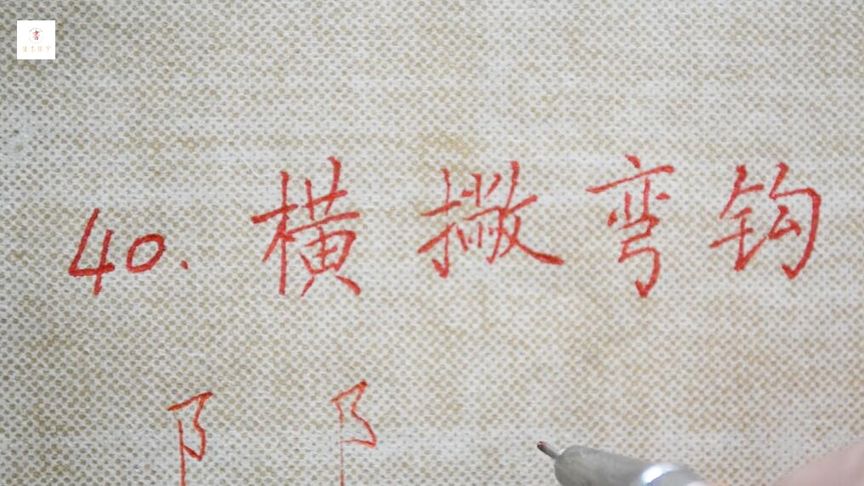 40. 横撇弯钩
阝 阝